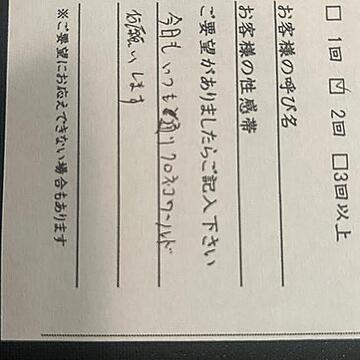 □ 1回 ☑ 2回 □3回以上
お客様の呼び名
お客様の性感帯
ご要望がありましたらご記入下さい
今日もいつも通りクロネコワールド
お願いします
※ご要望にお応えできない場合もあります